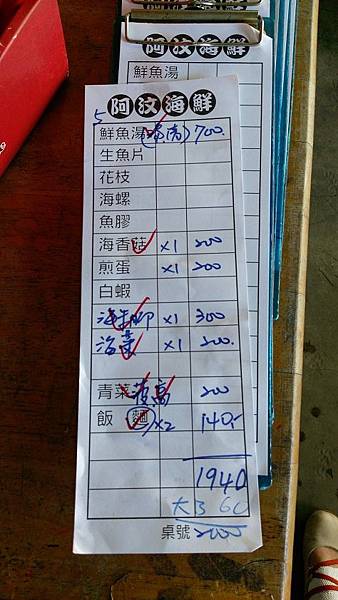 阿汶海鮮
鮮魚湯
5
阿汶海鮮
鮮魚湯 700.
生魚片
花枝
海螺
魚膠
海香菇 x1 200
煎蛋 x1 200
白蝦
x1 300
x1 200.
青菜 200
飯 麵 x2 140.-
1940
大B 60
桌號 2000